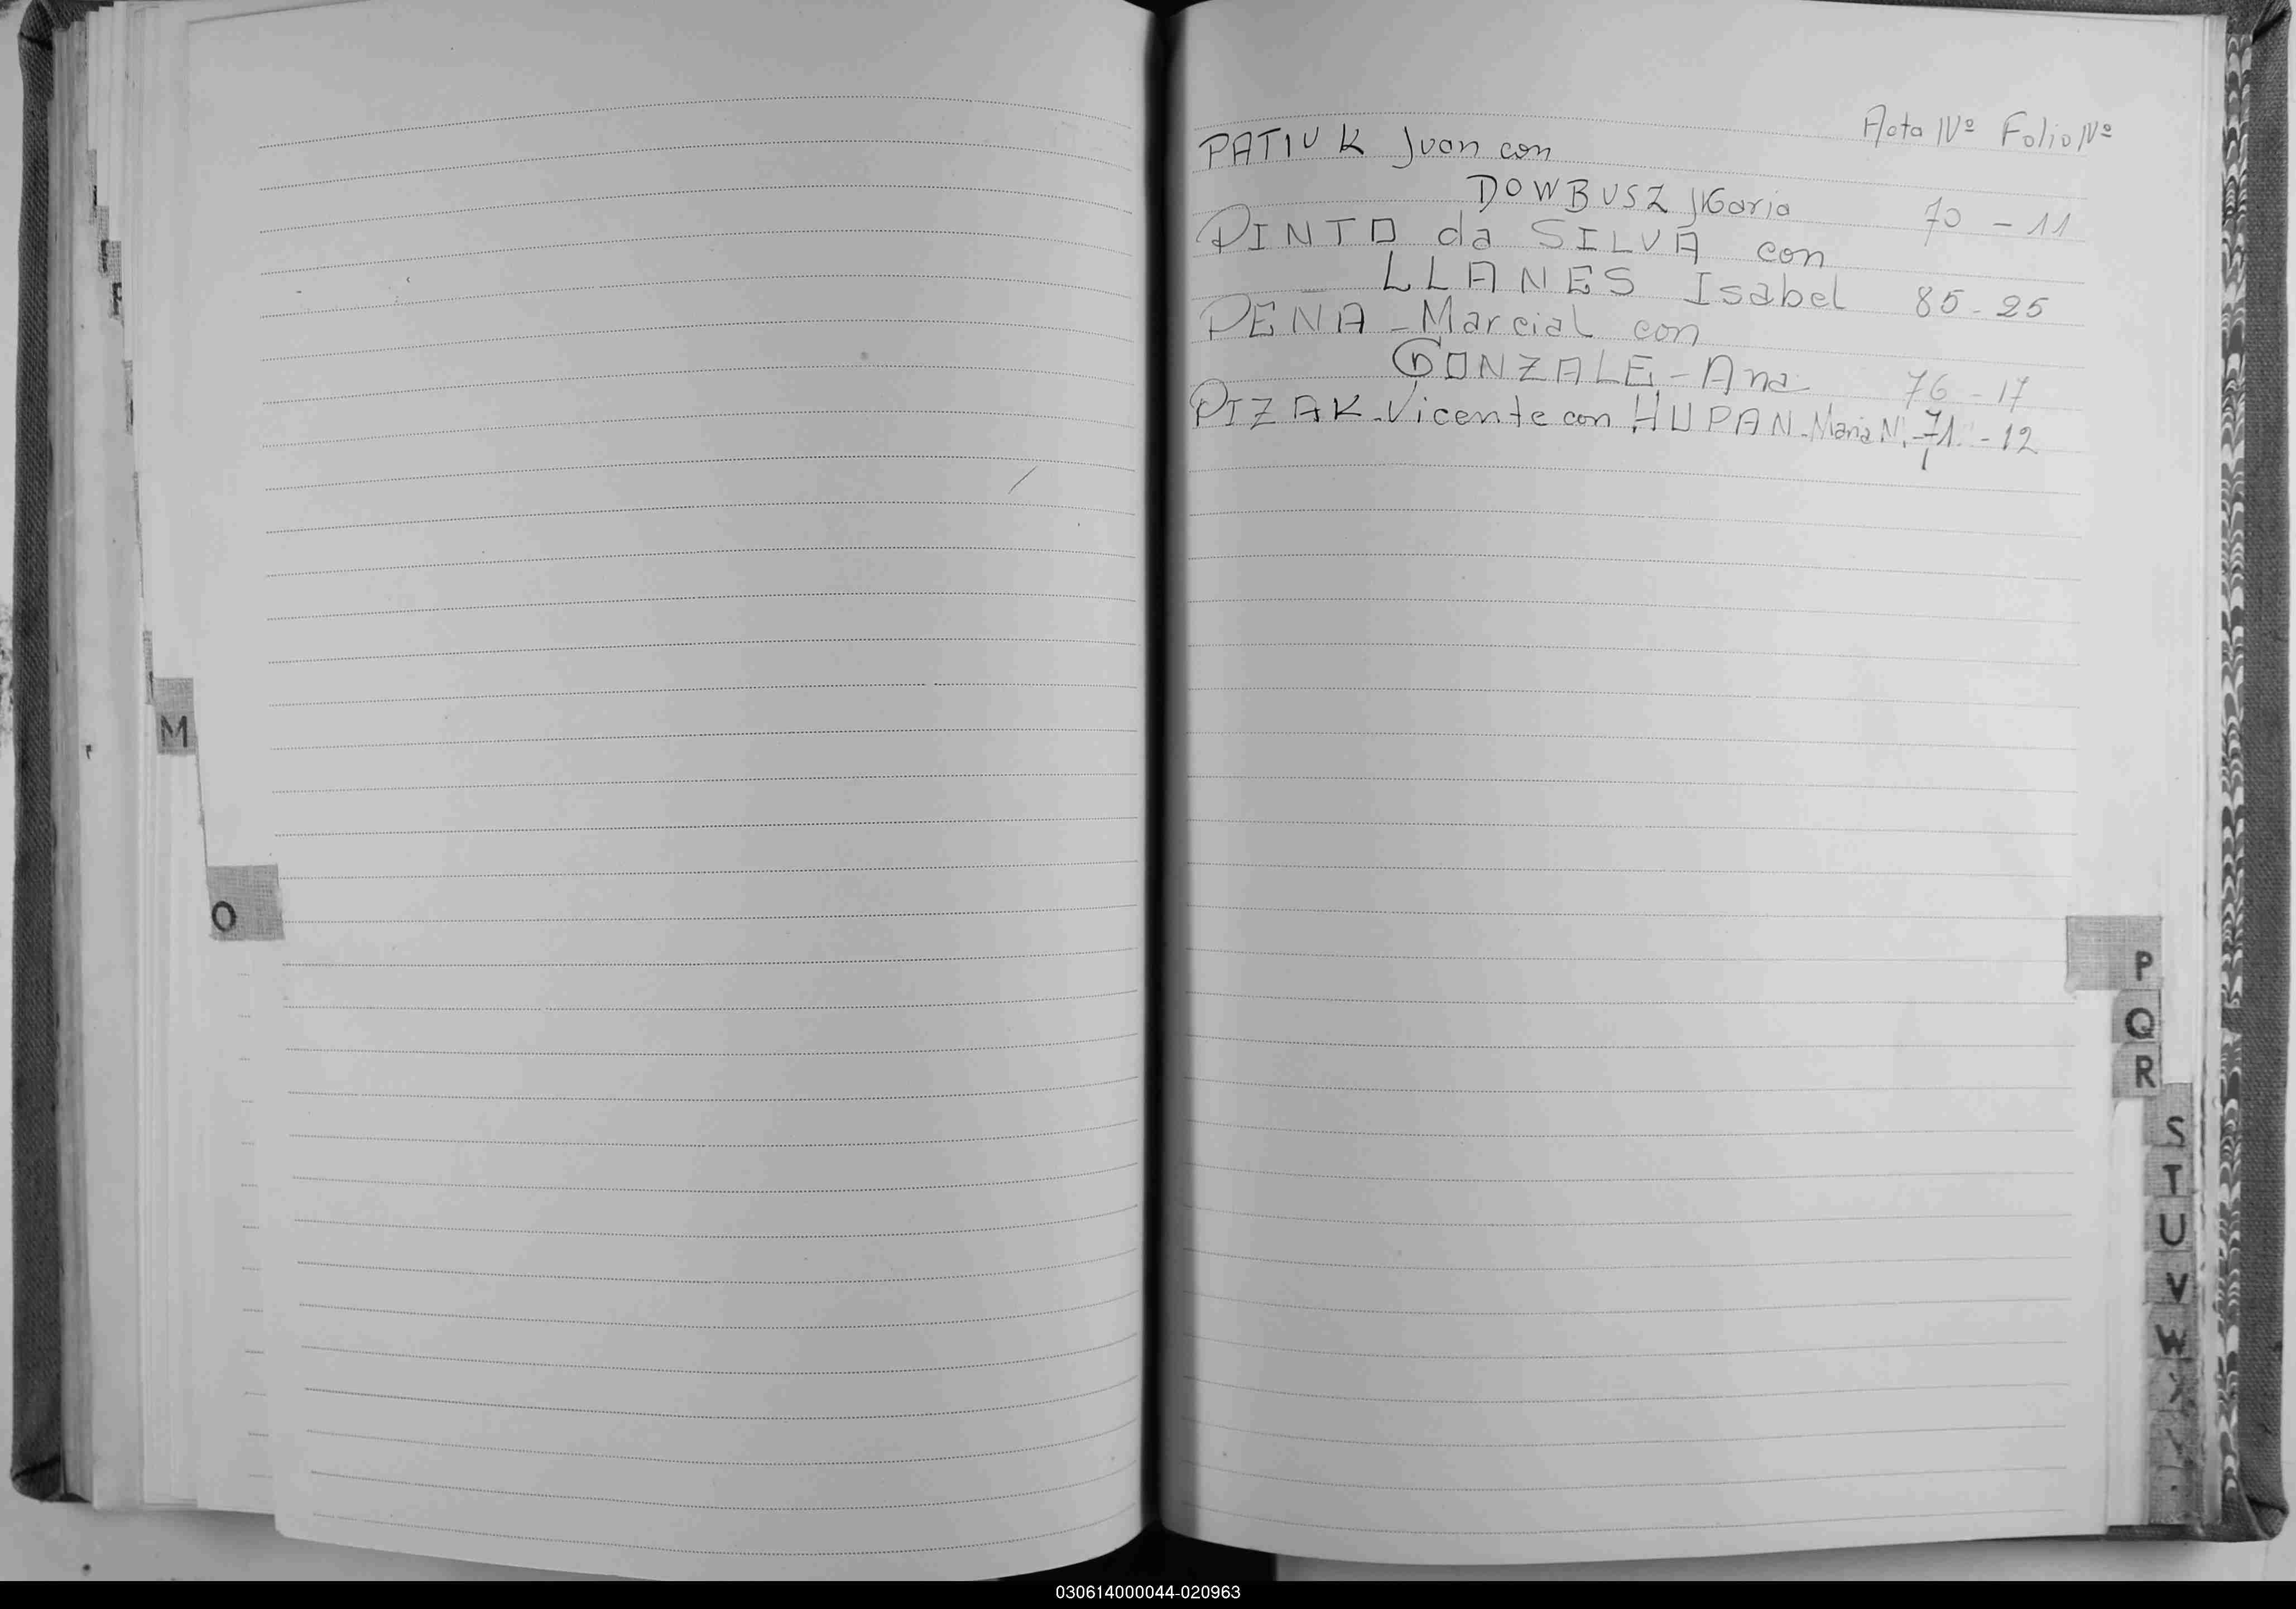 Acta Nº Folio Nº
PATIUK Juan con
DOWBUSZ Maria 70 - 11
PINTO da SILVA con
LLANES Isabel 85 - 25
PEÑA - Marcial con
GONZALE - Ana 76 - 17
PIZAK - Vicente con HUPAN - Maria N. - 71. - 12
M
O
P
Q
R
S
T
U
V
W
030614000044-020963